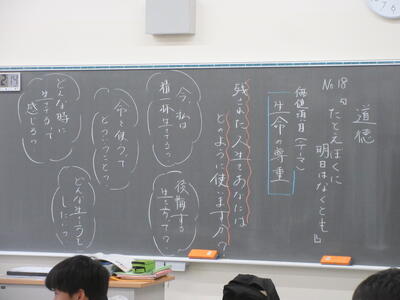 道徳
No.18『たとえぼくに
明日はなくとも』
価値項目(テーマ)
生命の尊重
残された人生をあなたは
どのように使いますか?
今、私は
精一杯生きてる?
後悔する
生き方って?
命を使うって
どういうこと?
どんな時に
生きてるって
感じる?
どんな生き方を
したい?